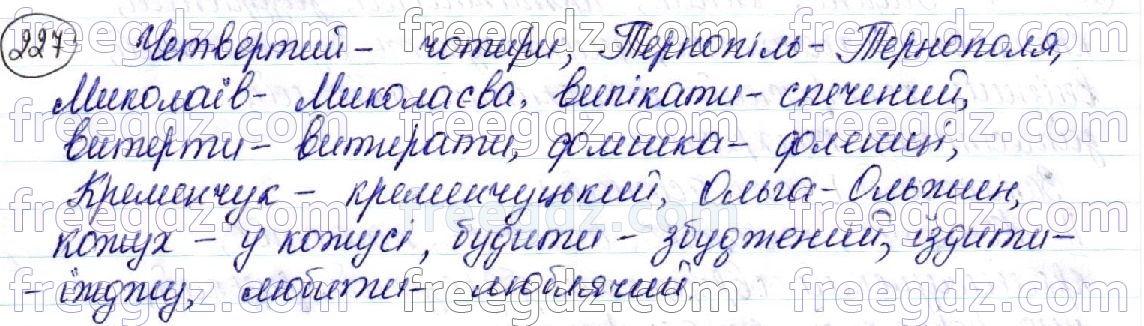 227 Четвертий - чотири, Тернопіль - Тернополя,
Миколаїв - Миколаєва, випікати - спечений,
витерти - витирати, фолешка - фолешці,
Кременчук - кременчуцький, Ольга - Ольжин,
кожух - у кожусі, будити - збуджений, їздити -
- їжджу, любити - люблячий.
freegdz.com